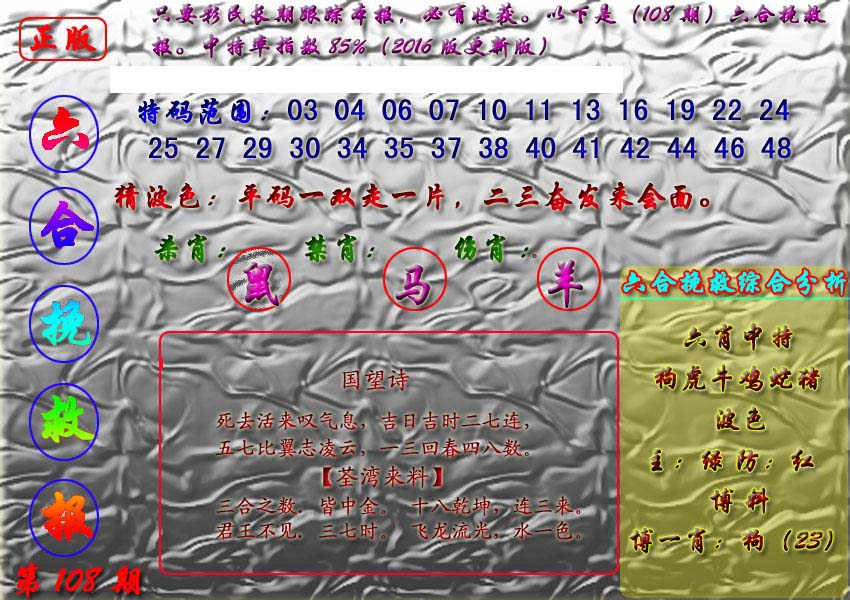 正版
只要彩民长期跟踪本报，必有收获。以下是（108期）六合挽救
报。中特率指数85%（2016版更新版）
六合挽救报
第108期
特码范围：03 04 06 07 10 11 13 16 19 22 24
25 27 29 30 34 35 37 38 40 41 42 44 46 48
猜波色：单码一双走一片，二三奋发来会面。
杀肖：鼠 禁肖：马 伤肖：羊
国望诗
死去活来叹气息，吉日吉时二七连，
五七比翼志凌云，一三回春四八数。
【荃湾来料】
三合之数．皆中金。 十八乾坤，连三来。
君王不见．三七时。 飞龙流光，水一色。
六合挽救综合分析
六肖中特
狗虎牛鸡蛇猪
波色
主：绿防：红
博料
博一肖：狗（23）